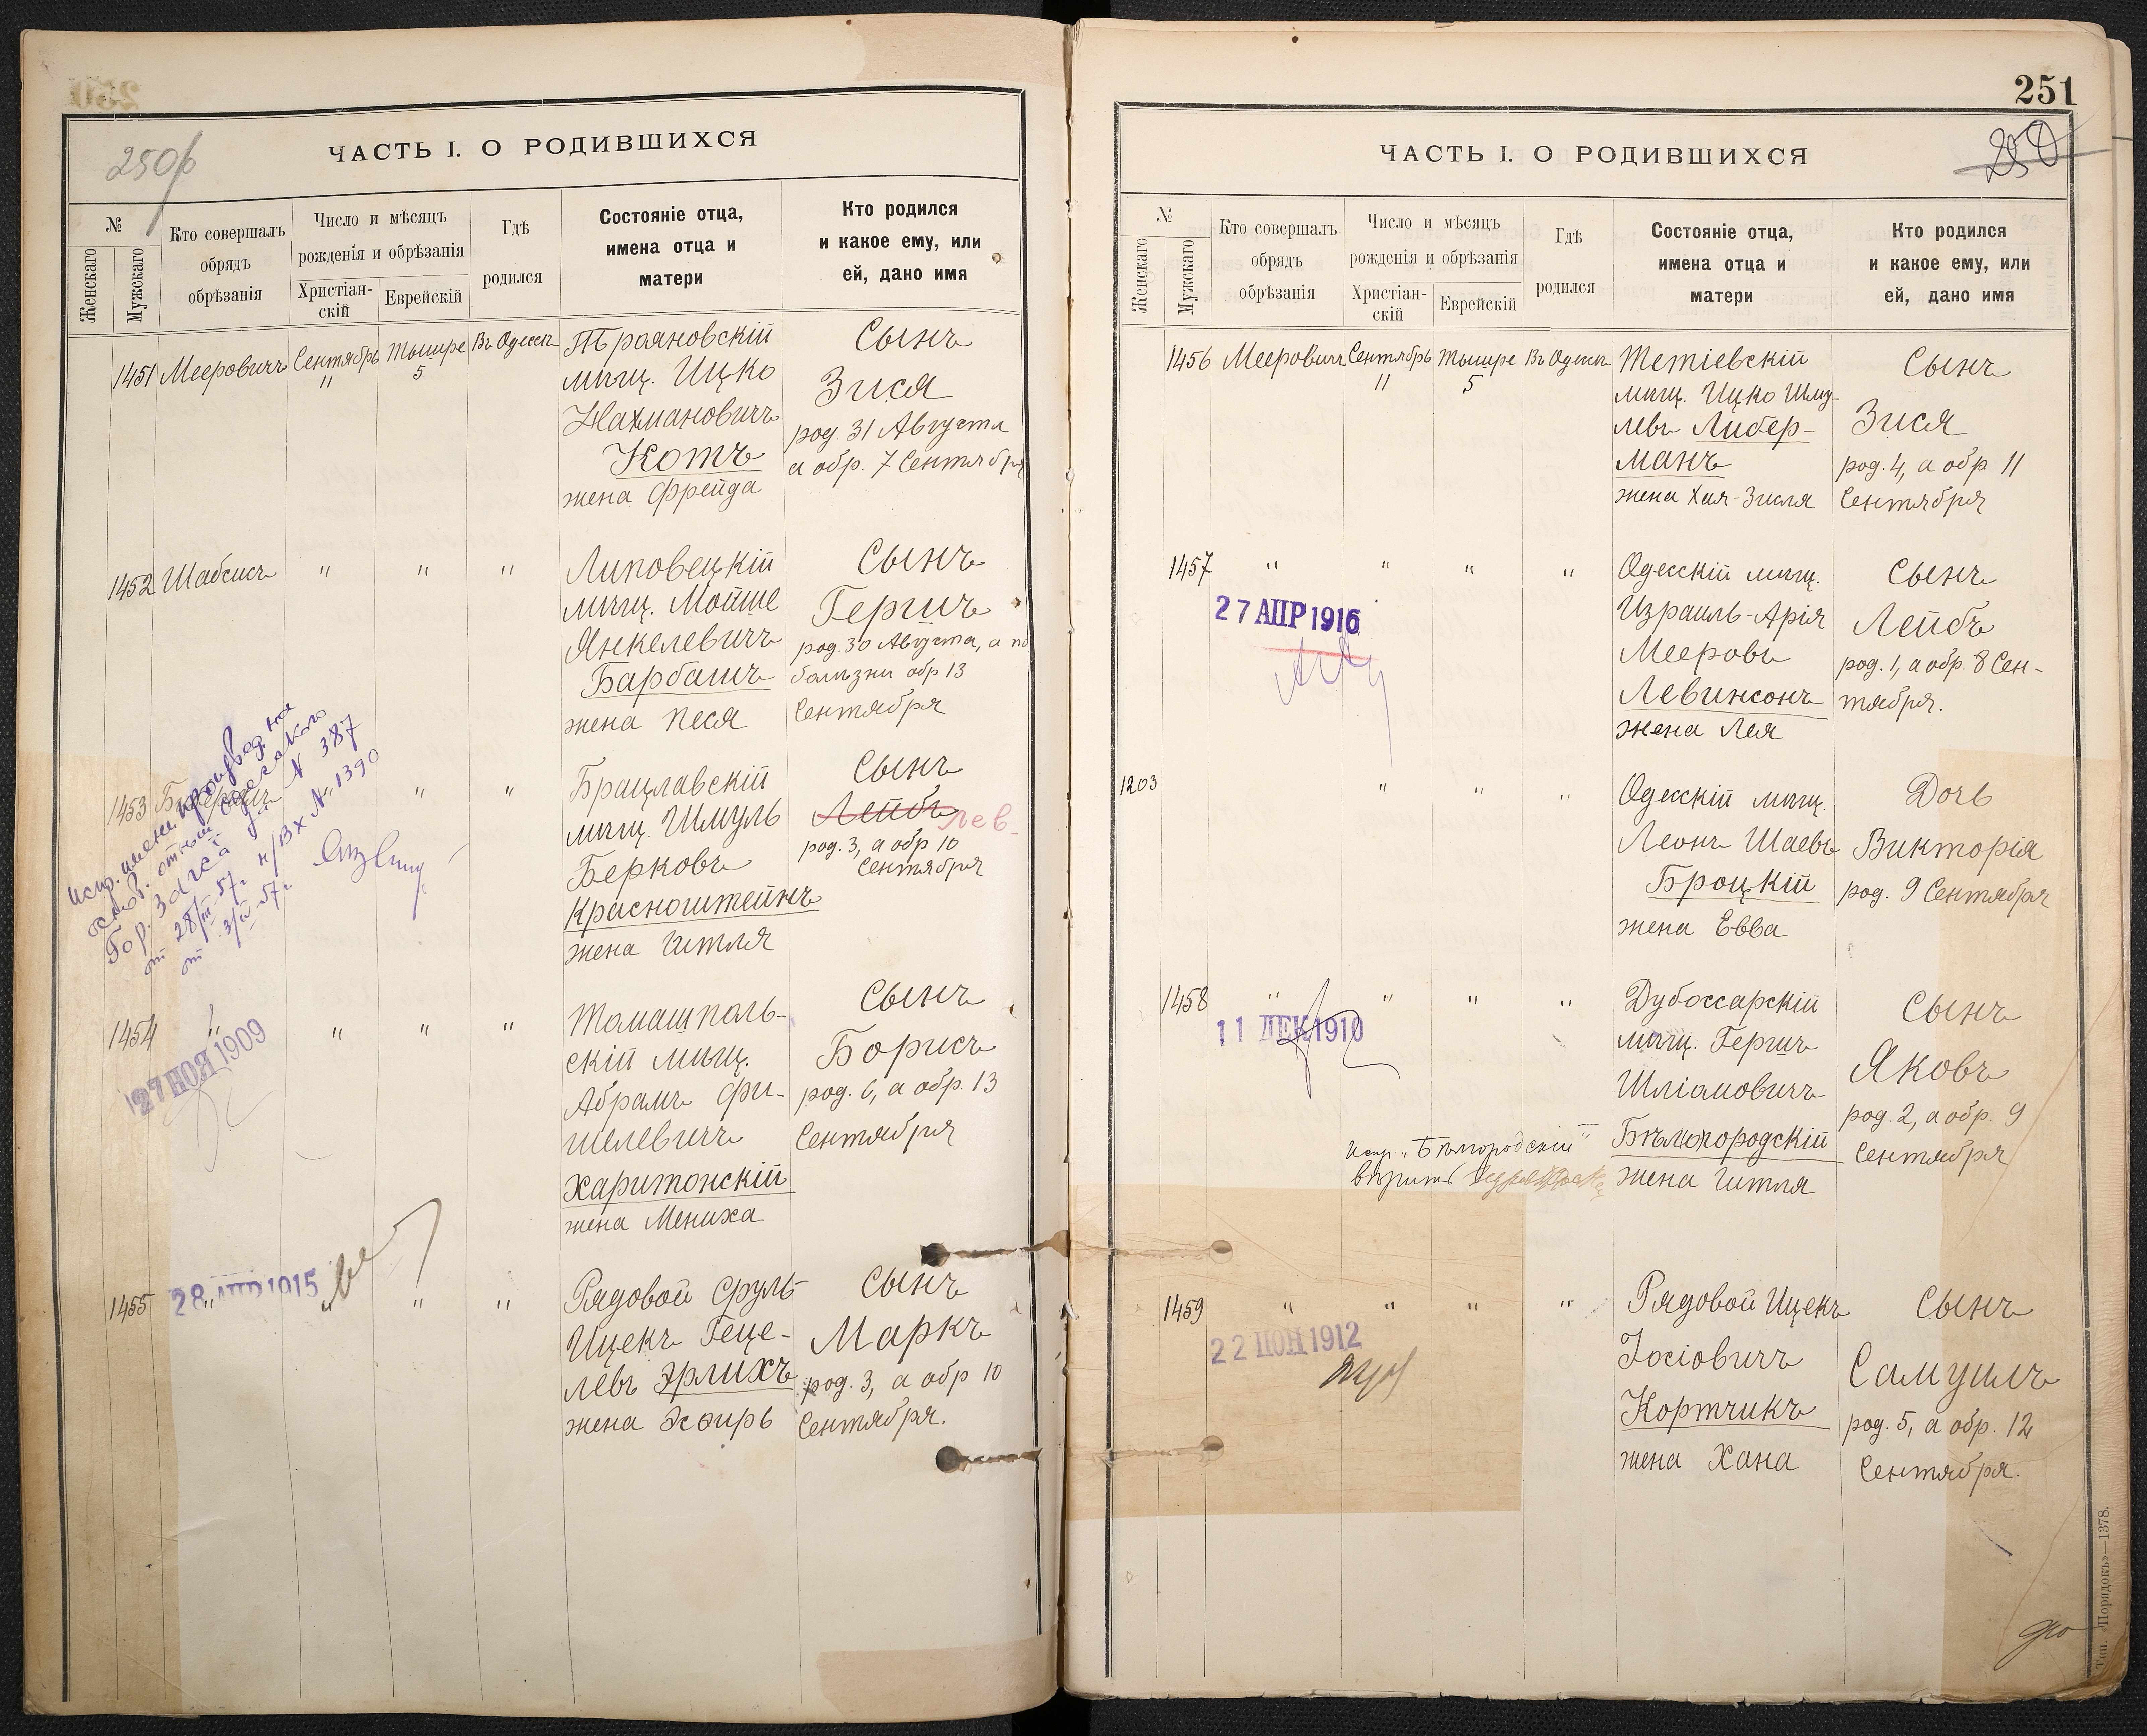 250б
ЧАСТЬ I. О РОДИВШИХСЯ
№
Женскаго
Мужскаго
Кто совершалъ
обрядъ
обрѣзанія
Число и мѣсяцъ
рожденія и обрѣзанія
Христіан-
скій
Еврейскій
Гдѣ
родился
Состояніе отца,
имена отца и
матери
Кто родился
и какое ему, или
ей, дано имя
1451 Мееровичъ Сентябрь 11 Тышре 5 Въ Одессѣ
Трояновскій
мѣщ. Ицко
Нахмановичъ
Котъ
жена Фрейда
Сынъ
Зися
род. 31 Августа
а обр. 7 Сентября
1452 Шабсисъ " " "
Липовецкій
мѣщ. Мойше
Янкелевичъ
Барбашъ
жена Песя
Сынъ
Гершъ
род. 30 Августа, а по
болѣзни обр 13
Сентября
1453 " "
Брацлавскій
мѣщ. Шмуль
Берковъ
Красноштейнъ
жена Гитля
Сынъ
Лейбъ Лев
род. 3, а обр 10
Сентября
Испр. имени производ. на
основ. отнош. Одесского
Гор. ЗАГСа за N 387
от 28/III-57г. и/вх N 1390
от 3/IV-57г.
1454 " " " "
27 НОЯ 1909
Томашполь-
скій мѣщ.
Абрамъ Фи-
шелевичъ
Харитонскій
жена Мениха
Сынъ
Борисъ
род. 6, а обр. 13
Сентября
1455 " " " "
28 АПР 1915
Рядовой Сруль-
Ицекъ Геце-
левъ Эрлихъ
жена Эсѳирь
Сынъ
Маркъ
род. 3, а обр 10
Сентября.
251
250
ЧАСТЬ I. О РОДИВШИХСЯ
№
Женскаго
Мужскаго
Кто совершалъ
обрядъ
обрѣзанія
Число и мѣсяцъ
рожденія и обрѣзанія
Христіан-
скій
Еврейскій
Гдѣ
родился
Состояніе отца,
имена отца и
матери
Кто родился
и какое ему, или
ей, дано имя
1456 Мееровичъ Сентябрь 11 Тышре 5 Въ Одессѣ
Тетіевскій
мѣщ. Ицко Шму-
левъ Либер-
манъ
жена Хая-Зисля
Сынъ
Зися
род. 4, а обр 11
Сентября
1457 " " " "
27 АПР 1916
Одесскій мѣщ.
Израиль-Арія
Мееровъ
Левинсонъ
жена Лея
Сынъ
Лейбъ
род. 1, а обр. 8 Сен-
тября.
1203 " " "
Одесскій мѣщ.
Леонъ Шаевъ
Броцкій
жена Евва
Дочь
Викторія
род. 9 Сентября
1458 " " " "
11 ДЕК 1910
Дубоссарскій
мѣщ. Гершъ
Шліомовичъ
Бѣлогородскій
жена Гитля
Сынъ
Яковъ
род. 2, а обр. 9
Сентября
Испр. "Бѣлгородскій"
вѣрить
1459 " " " "
22 1912
Рядовой Ицекъ
Іосіовичъ
Кортчикъ
жена Хана
Сынъ
Самуилъ
род. 5, а обр. 12
Сентября.
Тип. «Порядокъ»—1378.